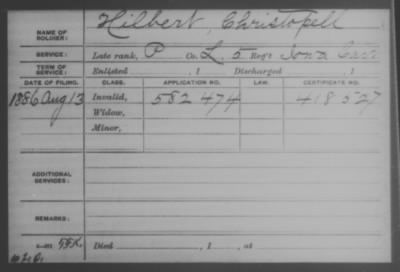 NAME OF SOLDIER: Hilbert, Christopell
SERVICE: Late rank, P Co. L, 5 Reg't Iowa Cav
TERM OF SERVICE: Enlisted , 1 Discharged , 1
DATE OF FILING. CLASS. APPLICATION NO. LAW. CERTIFICATE NO.
1886 Aug 13 Invalid, 582 474 418 527
Widow,
Minor,
ADDITIONAL SERVICES:
REMARKS:
Died , 1 , at